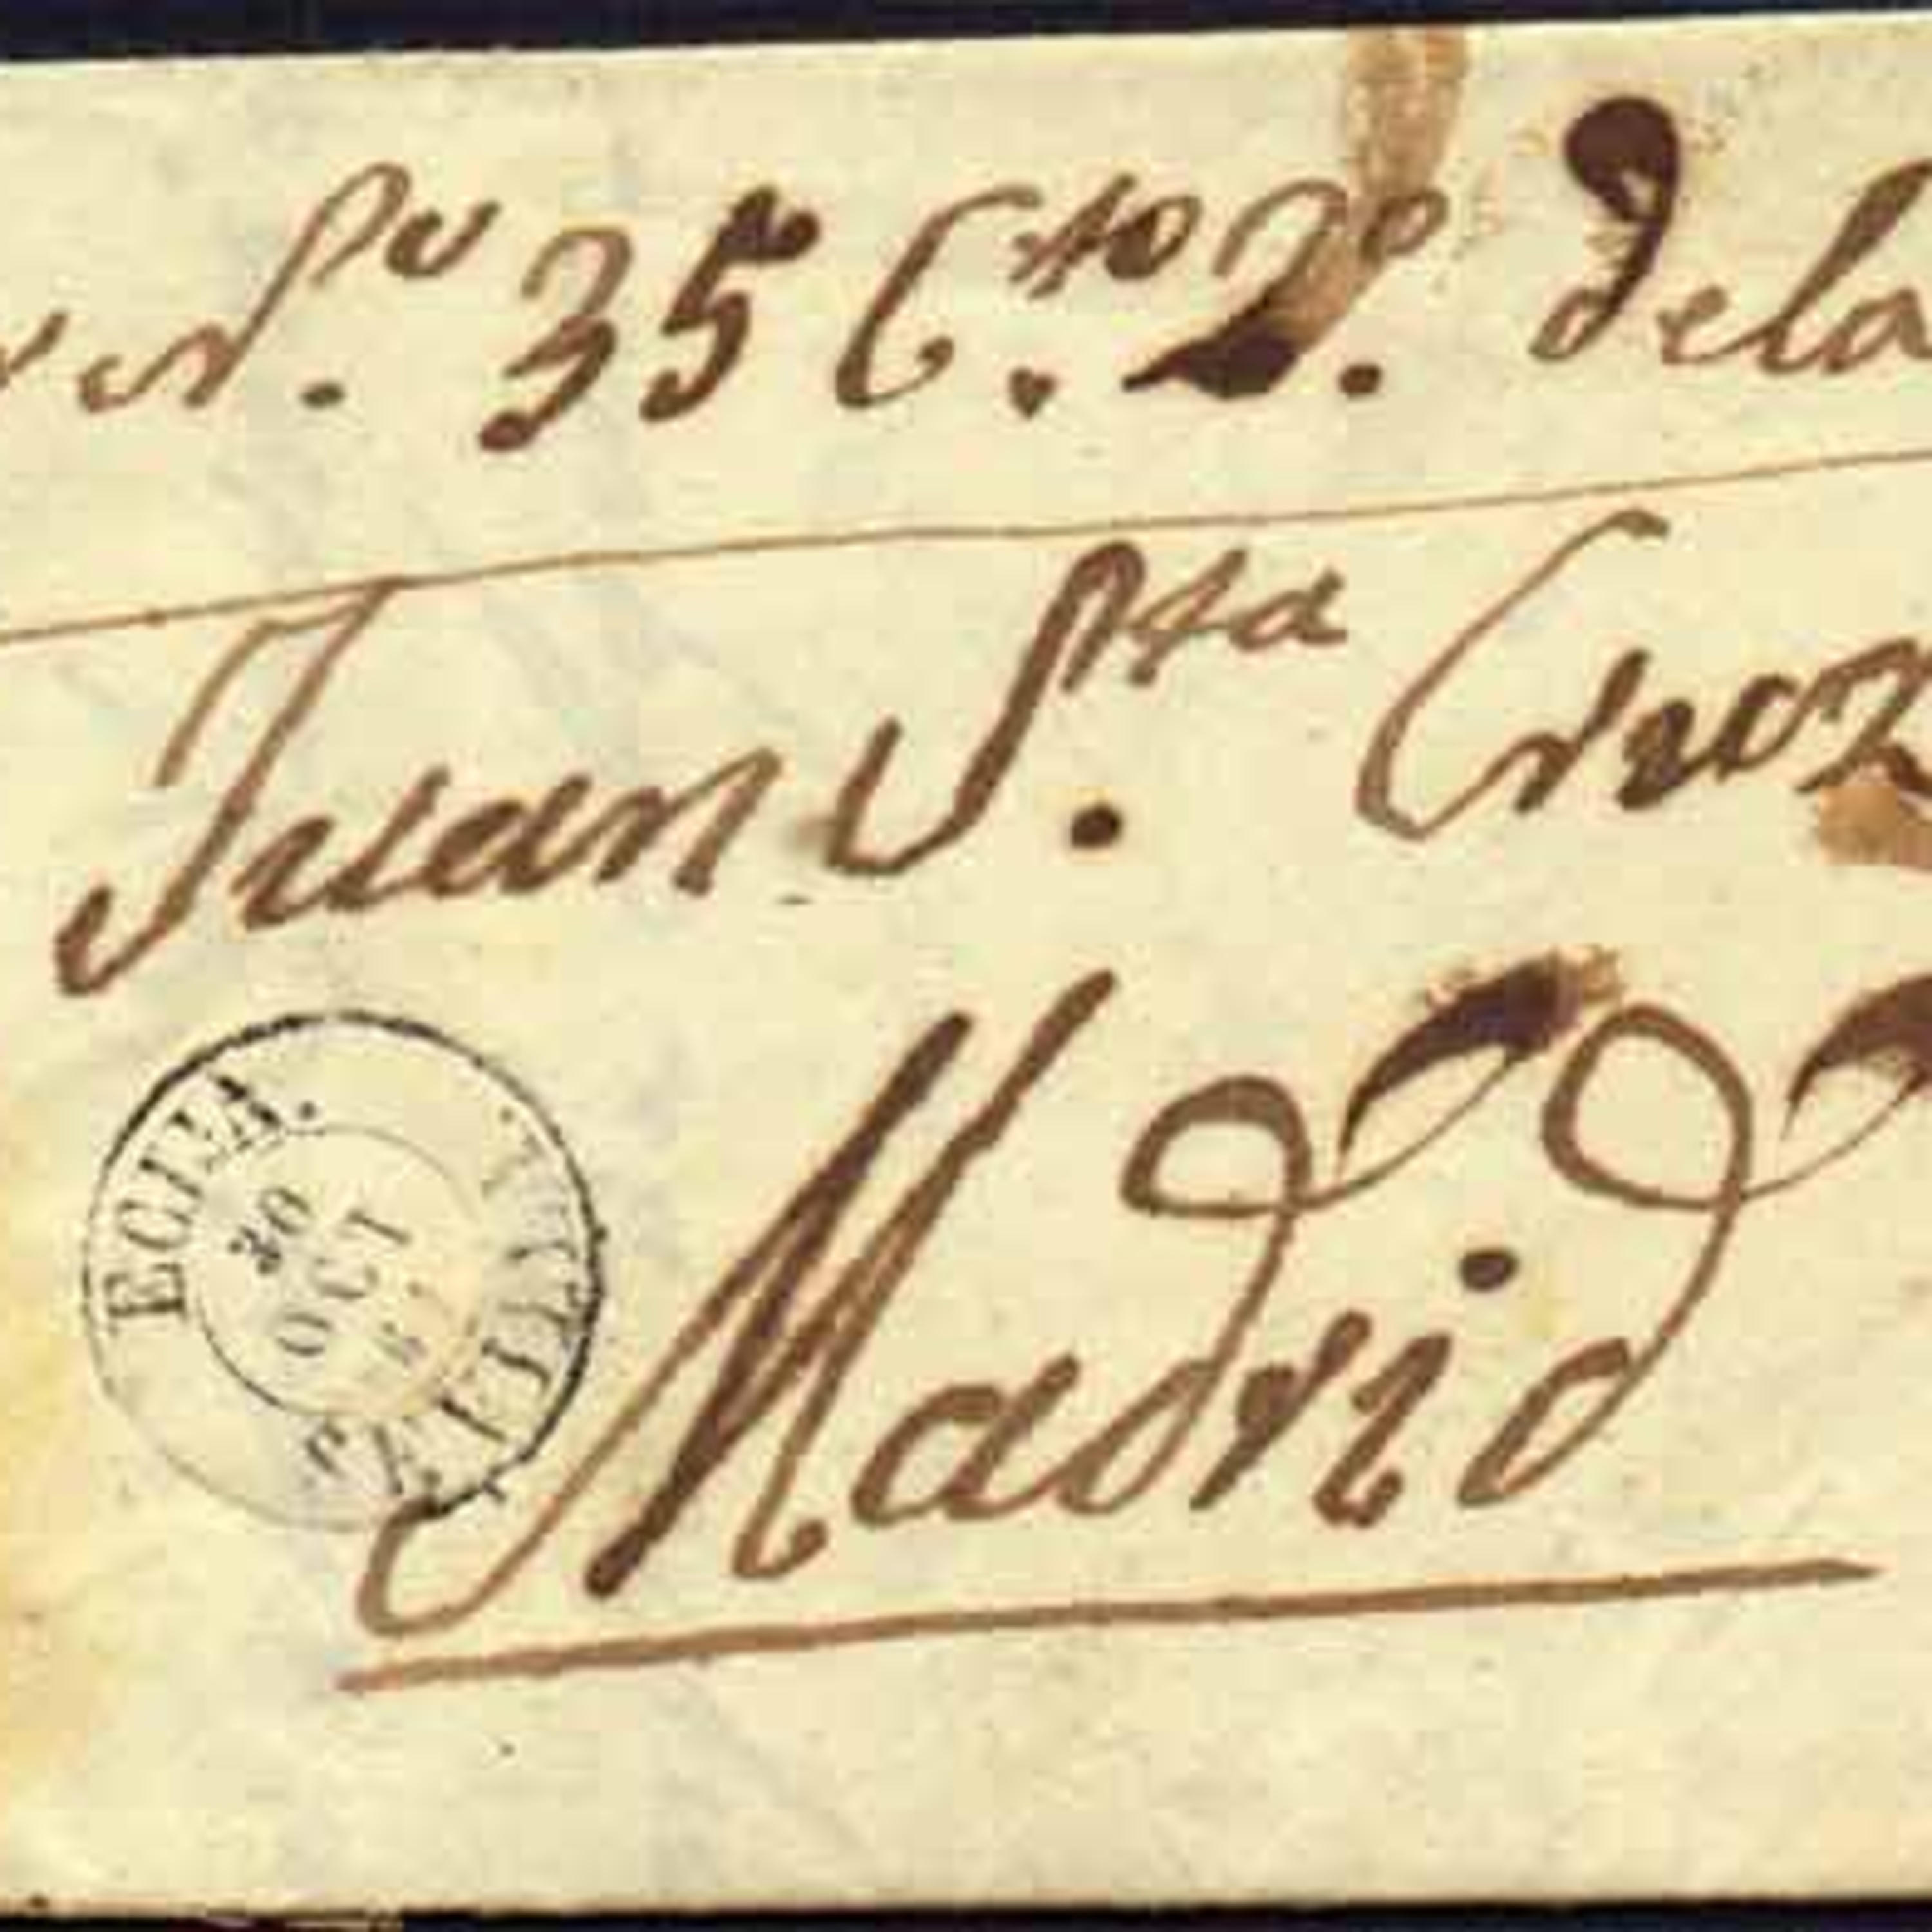 N.º 35 C.to 2.º dela
Juan S.ta Cruz
Madrid
ECIJA.
30
OCT
SEVILLA